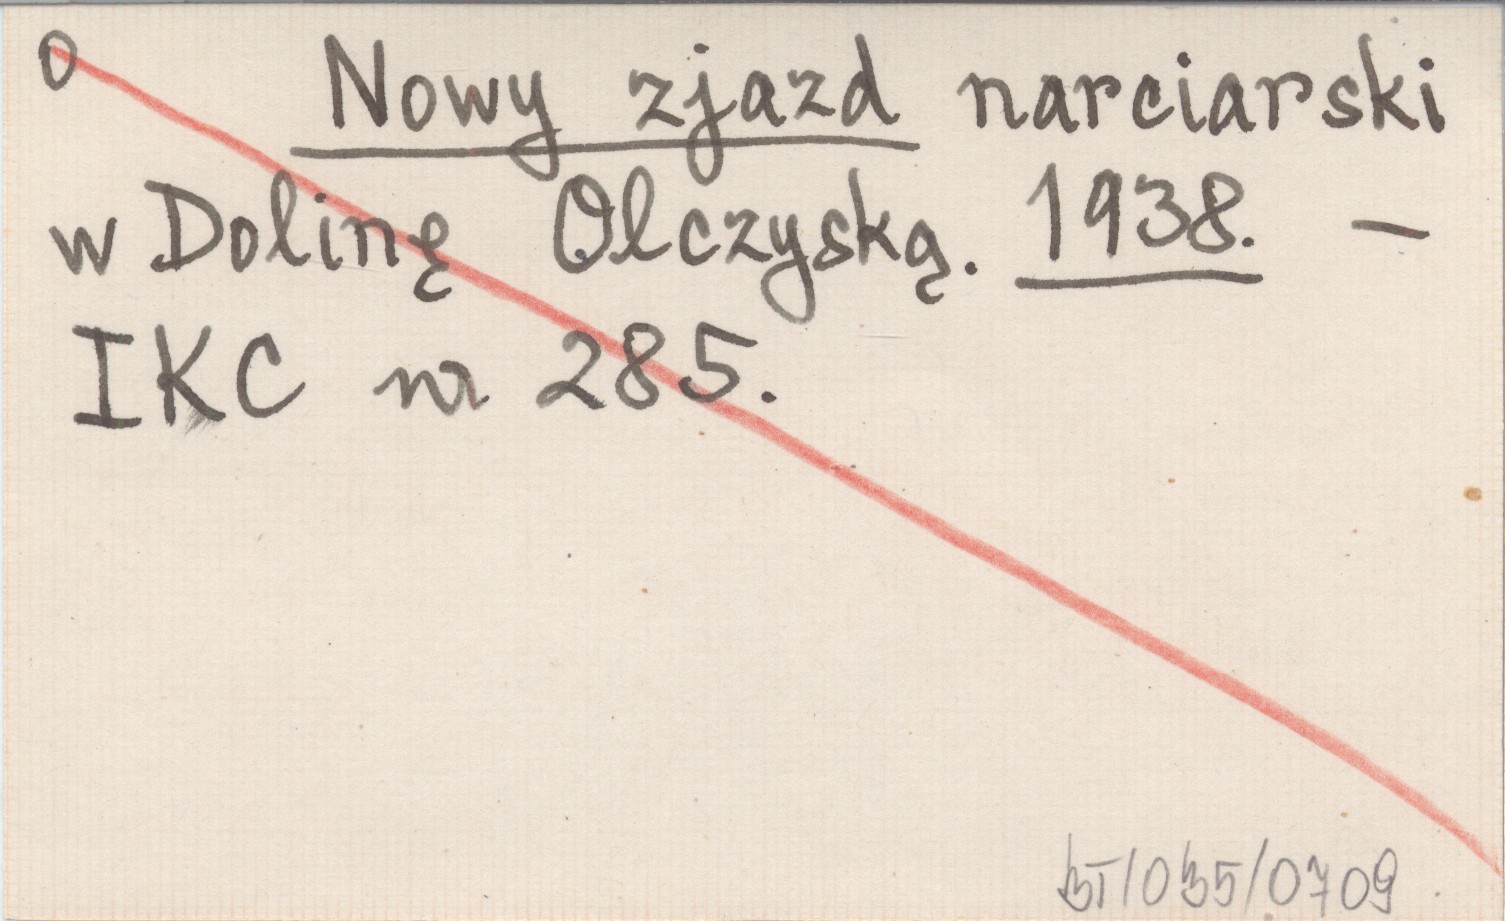 0 Nowy zjazd narciarski
w Dolinę Olczyską. 1938. –
IKC nr 285.
BT/035/0709